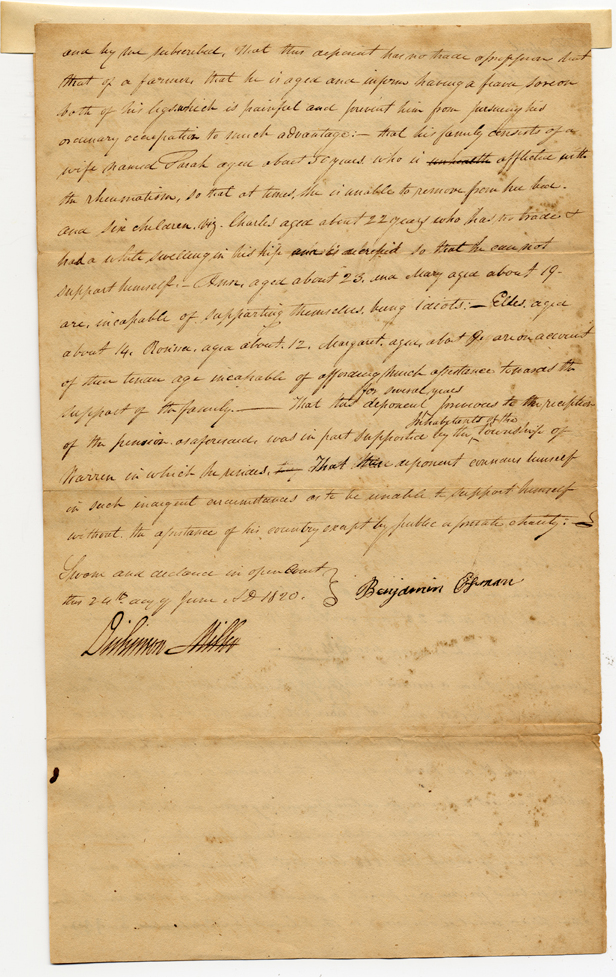 and by me subscribed, That this deponent has no trade or profession but
that of a farmer, that he is aged and infirm having a fever sore on
both of his legs which is painful and prevent him from pursuing his
ordinary occupation to much advantage:— that his family consists of a
wife named Sarah aged about 50 years who is unhealth afflicted with
the rheumatism, so that at times, she is unable to remove from her bed.
and six children. viz. Charles aged about 22 years who has no trade &
had a white swelling in his hip and is so that he can not
support himself:— Anne, aged about 23. and Mary aged about 19—
are, incapable of supporting themselves, being idiots:— aged
about 14. aged about. 12. Margaret, aged about 9. are on account
of their tender age incapable of affording much assistance towards the
for several years
support of the family.— That this deponent previous to the reception
Inhabitants of the
of the pension, as aforesaid, was in part supported by the Township of
Warren in which he resides, That deponent conceives himself
in such indigent circumstances as to be unable to support himself
without the assistance of his country except by public or private charity:—
Sworn and declared in open Court
this 24th. day of June A.D 1820.
Benjamin
Dickinson Miller